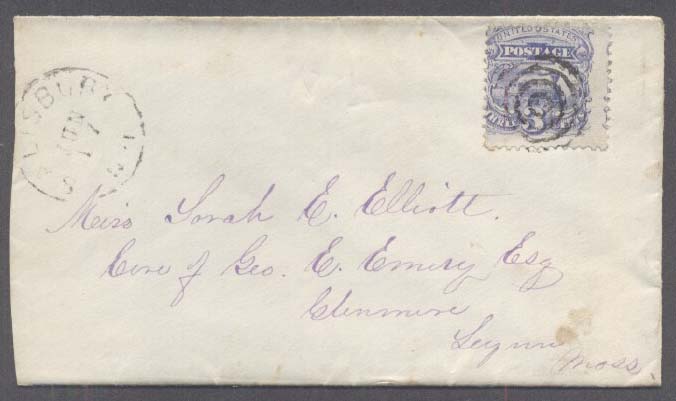 UNITED STATES
POSTAGE
3
SALISBURY
JUN
17
Miss Sarah E. Elliott.
Care of Geo. E. Emery Esq
Glenmere
Lynn
Mass.